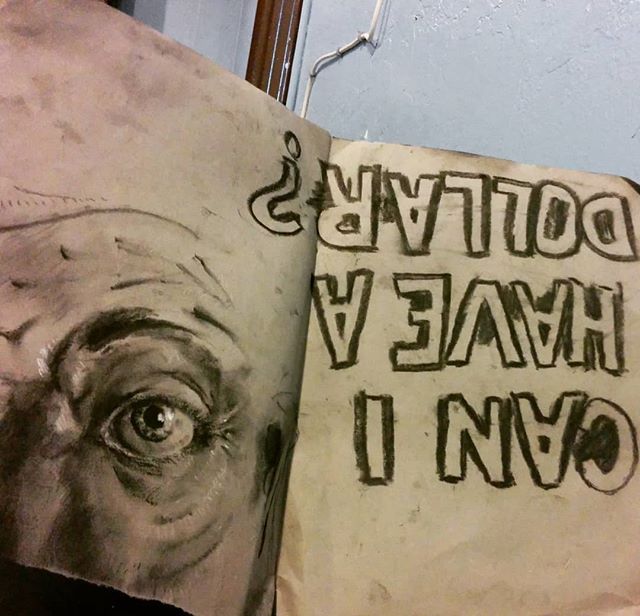 CAN I
HAVE A
DOLLAR?